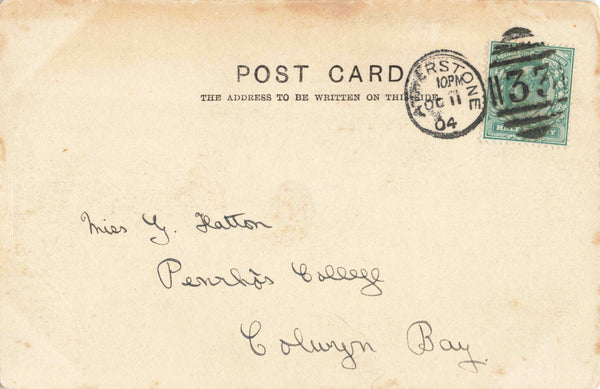 POST CARD
THE ADDRESS TO BE WRITTEN ON THIS SIDE
ATHERSTONE
10PM
OC 11
04
33
HALFPENNY
Miss G. Hatton
Penrhôs College
Colwyn Bay.